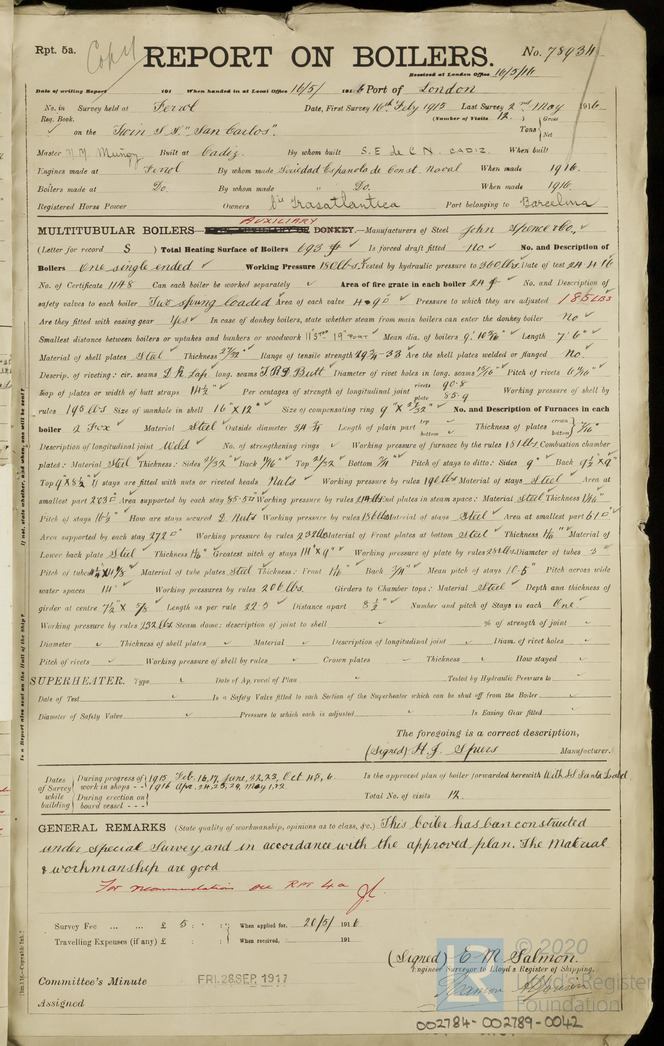 Rpt. 5a. Copy REPORT ON BOILERS. No. 78934
Received at London Office 16/5/16
Date of writing Report 191 When handed in at Local Office 16/5/ 1916 Port of London
No. in Survey held at Ferrol Date, First Survey 16th Feby 1915 Last Survey 2nd May 1916
Reg. Book. (Number of Visits 12.) Gross
on the Twin S.S. "San Carlos". Tons Net
Master Built at Cadiz. By whom built S.E de C N. CADIZ. When built
Engines made at Ferrol By whom made Sociedad Espanola de Const. Naval When made 1916.
Boilers made at Do. By whom made " Do. When made 1916.
Registered Horse Power Owners Cia Trasatlantica Port belonging to Barcelona
AUXILIARY
MULTITUBULAR BOILERS DONKEY.—Manufacturers of Steel John Spencer & Co.
(Letter for record S ) Total Heating Surface of Boilers 693 Is forced draft fitted no No. and Description of
Boilers One single ended Working Pressure 180 lbs. Tested by hydraulic pressure to 360 lbs. Date of test 24.4.16
No. of Certificate 1148 Can each boiler be worked separately Area of fire grate in each boiler 24 No. and Description of
safety valves to each boiler Two spring loaded Area of each valve 4.90 Pressure to which they are adjusted 185 LBS
Are they fitted with easing gear Yes In case of donkey boilers, state whether steam from main boilers can enter the donkey boiler no
Smallest distance between boilers or uptakes and bunkers or woodwork Mean dia. of boilers Length 7'.6"
Material of shell plates Steel Thickness 27/32 Range of tensile strength 29¼-33 Are the shell plates welded or flanged no
Descrip. of riveting: cir. seams D R Lap long. seams Butt Diameter of rivet holes in long. seams Pitch of rivets
Lap of plates or width of butt straps 14½" Per centages of strength of longitudinal joint rivets 90.8 Working pressure of shell by
plate 85.9
rules 195 lbs Size of manhole in shell 16" X 12" Size of compensating ring No. and Description of Furnaces in each
boiler 2 Fox Material Steel Outside diameter Length of plain part top bottom Thickness of plates crown bottom 7/16"
Description of longitudinal joint Weld No. of strengthening rings Working pressure of furnace by the rules 181 lbs. Combustion chamber
plates: Material Steel Thickness: Sides 21/32 Back Top 21/32 Bottom 3/4" Pitch of stays to ditto: Sides 9" Back 9½ x 9"
Top If stays are fitted with nuts or riveted heads Nuts Working pressure by rules 190 lbs Material of stays Steel Area at
smallest part 2.03 Area supported by each stay 85.50 Working pressure by rules End plates in steam space: Material Steel Thickness
Pitch of stays 16½" How are stays secured D. Nuts Working pressure by rules Material of stays Steel Area at smallest part 6.10
Area supported by each stay 272 Working pressure by rules 232 lbs Material of Front plates at bottom Steel Thickness Material of
Lower back plate Steel Thickness Greatest pitch of stays Working pressure of plate by rules Diameter of tubes 3"
Pitch of tubes Material of tube plates Steel Thickness: Front Back 3/4" Mean pitch of stays 10.5" Pitch across wide
water spaces 14" Working pressures by rules 206 lbs. Girders to Chamber tops: Material Steel Depth and thickness of
girder at centre Length as per rule 22.3 Distance apart 8½" Number and pitch of Stays in each One
Working pressure by rules 232 lbs Steam dome: description of joint to shell % of strength of joint
Diameter Thickness of shell plates Material Description of longitudinal joint Diam. of rivet holes
Pitch of rivets Working pressure of shell by rules Crown plates Thickness How stayed
SUPERHEATER. Type Date of Approval of Plan Tested by Hydraulic Pressure to
Date of Test Is a Safety Valve fitted to each Section of the Superheater which can be shut off from the Boiler
Diameter of Safety Valve Pressure to which each is adjusted Is Easing Gear fitted
The foregoing is a correct description,
(Signed) H. J. Spiers Manufacturer.
Dates of Survey while building During progress of work in shops - - 1915 Feb. 16,17, June, 22,23, Oct 4,5,6. 1916 Apr. 24,25,29, May 1,2 Is the approved plan of boiler forwarded herewith With
During erection on board vessel - - - Total No. of visits 12.
GENERAL REMARKS (State quality of workmanship, opinions as to class, &c.) This boiler has ban constructed
under special Survey and in accordance with the approved plan. The Material
& workmanship are good
For recommendation see RPT 4a
Survey Fee ... ... £ 5 : : When applied for, 20/5/ 1916
Travelling Expenses (if any) £ : : When received, 191
(Signed) E M Salmon.
Engineer Surveyor to Lloyd's Register of Shipping.
Committee's Minute FRI. 28 SEP. 1917
Assigned
© 2020
Lloyd's Register
Foundation
002784-002789-0042